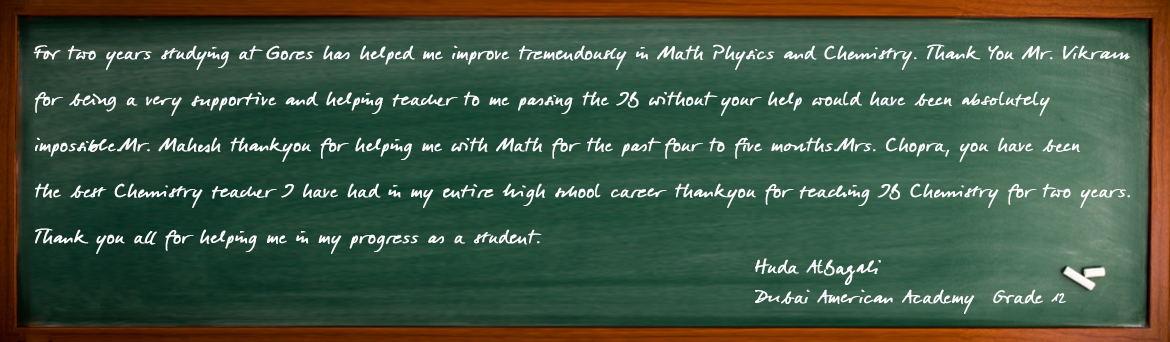 For two years studying at Gores has helped me improve tremendously in Math Physics and Chemistry. Thank You Mr. Vikram
for being a very supportive and helping teacher to me passing the IB without your help would have been absolutely
impossible.Mr. Mahesh thankyou for helping me with Math for the past four to five months.Mrs. Chopra, you have been
the best Chemistry teacher I have had in my entire high school career thankyou for teaching IB Chemistry for two years.
Thank you all for helping me in my progress as a student.
Huda AlBagali
Dubai American Academy Grade 12